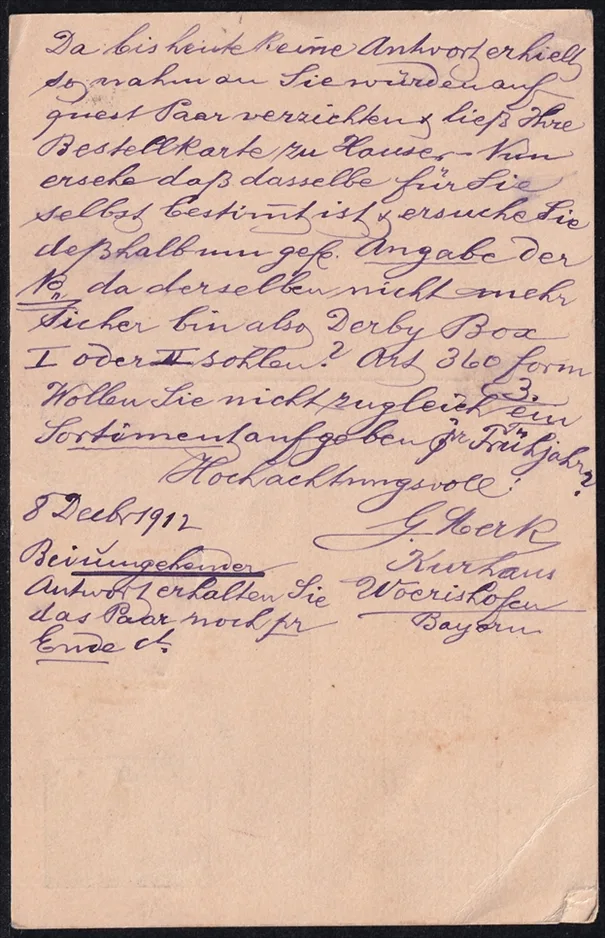 Da bis heute keine Antwort erhielt
so nahm an Sie würden auf
quest Paar verzichten & ließ Ihre
Bestellkarte zu Hause. – Nun
ersehe daß dasselbe für Sie
selbst bestimt ist & ersuche Sie
deßhalb um gefl. Angabe der
No. da derselben nicht mehr
sicher bin also Derby Box
I oder II sohlen? Art 360 form
3.
Wollen Sie nicht zugleich ein
Sortiment aufgeben für Frühjahr?
Hochachtungsvoll!
8 Decbr 1912
G. Merk
Kurhaus
Woerishofen
Bayern
Bei umgehender
Antwort erhalten Sie
das Paar noch pr
Ende ct.